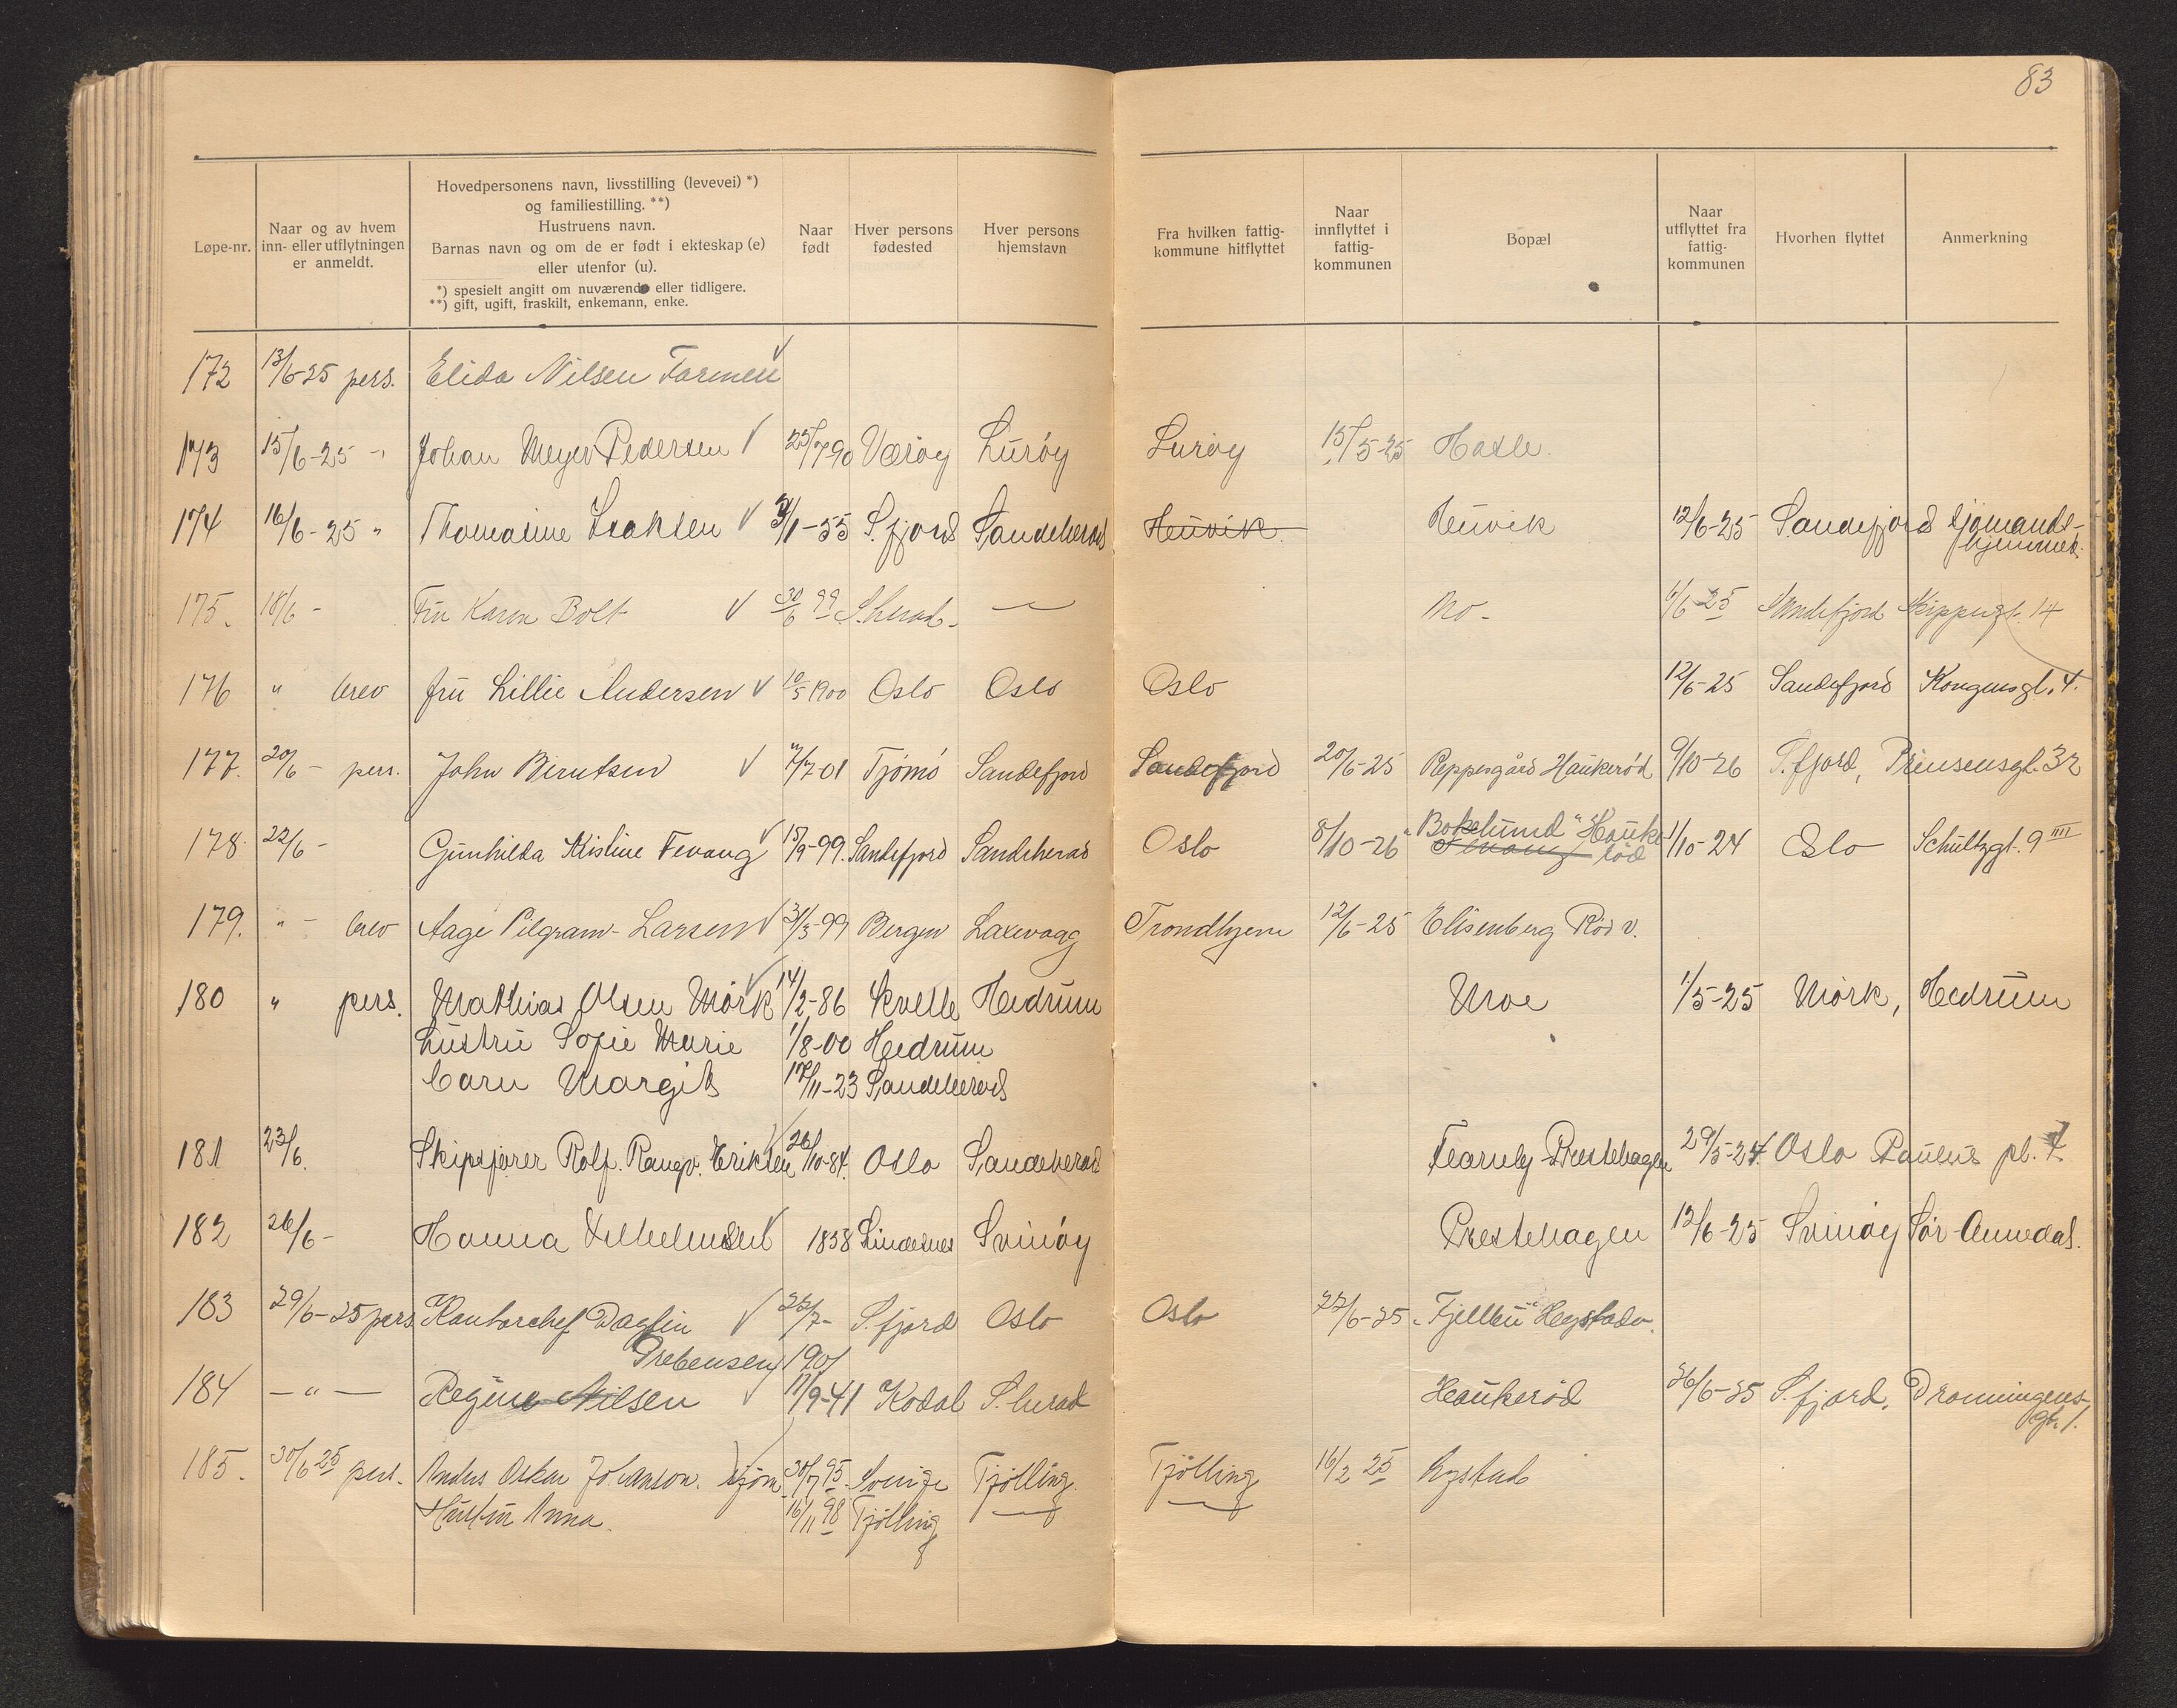 83
Løpe-nr.
Naar og av hvem
inn- eller utflytningen
er anmeldt.
Hovedpersonens navn, livsstilling (levevei) *)
og familiestilling. **)
Hustruens navn.
Barnas navn og om de er født i ekteskap (e)
eller utenfor (u).
*) spesielt angitt om nuværende eller tidligere.
**) gift, ugift, fraskilt, enkemann, enke.
Naar
født
Hver persons
fødested
Hver persons
hjemstavn
Fra hvilken fattig-
kommune hitflyttet
Naar
innflyttet i
fattig-
kommunen
Bopæl
Naar
utflyttet fra
fattig-
kommunen
Hvorhen flyttet
Anmerkning
172 13/6-25 pers. Elida Nilsen Farmen
173 15/6-25 " Johan Meyer Pedersen 25/7 90 Værøy Lurøy Lurøy 15/5-25 Hasle.
174 16/6-25 " Thomasine Isaksen /1-55 S.fjord Sandeherad Heuvik Heuvik 12/6-25 Sandefjord Sjømands-
hjemmet.
175. 18/6 - Fru Karen Bolt 30/6 99 S.herad. — Mo - 1/6 25 Sandefjord Skippergt. 14
176 " brev fru Lillie Andersen 10/5 1900 Oslo Oslo Oslo 12/6-25 Sandefjord Kongensgt. 4.
177. 20/6 - pers. John Berntsen 7/7-01 Tjømø Sandefjord Sandefjord 20/6-25 Peppesgård Haukerød 9/10-26 S.fjord, Prinsensgt. 32
178. 22/6 - Gunhilda Kristine Fevang 15/9-99. Sandefjord Sandeherad Oslo 8/10-26 "Bokelund" Hauke-
Fevang rød 1/10-24 Oslo Schultzgt. 9 IIII
179. " - brev Aage Pilgram-Larsen 3/3-99 Bergen Laxevaag Trondhjem 12/6-25 Elisenberg Rød v.
180 " pers. Mathias Olsen Mørk 14/2-86 Kvelle Hedrum Moe 1/5-25 Mørk, Hedrum
hustru Sofie Marie 1/8-00 Hedrum
barn Margit 17/11-23 Sandeherad
181 23/6. Skipsfører Rolf. Rangv. Eriksen 26/10-84. Oslo Sandeherad Fearnly Prestehagen 29/5-24. Oslo Paulus pl.
182 26/6 - Hanna Vilhelmsen 1858 Lindesnes Svinøy Prestehagen 12/6-25 Svinøy Sør-Audnedal.
183 29/6-25 pers Kontorchef Dagfin 22/7- S.fjord Oslo Oslo 22/6-25 "Fjellbu" Hegstadv.
Prebensen 1901
184 — " — Regine Nilsen 11/9-41 Kodal S.herad Haukerød 26/6-25 S.fjord. Dronningens-
gt. 1.
185. 30/6 25 pers. Anders Oskar Johanson. Sjøm. 30/7 95. Sverige Tjølling Tjølling 16/2 25 Nystad
Hustru Anna. 16/11 98 Tjølling — —